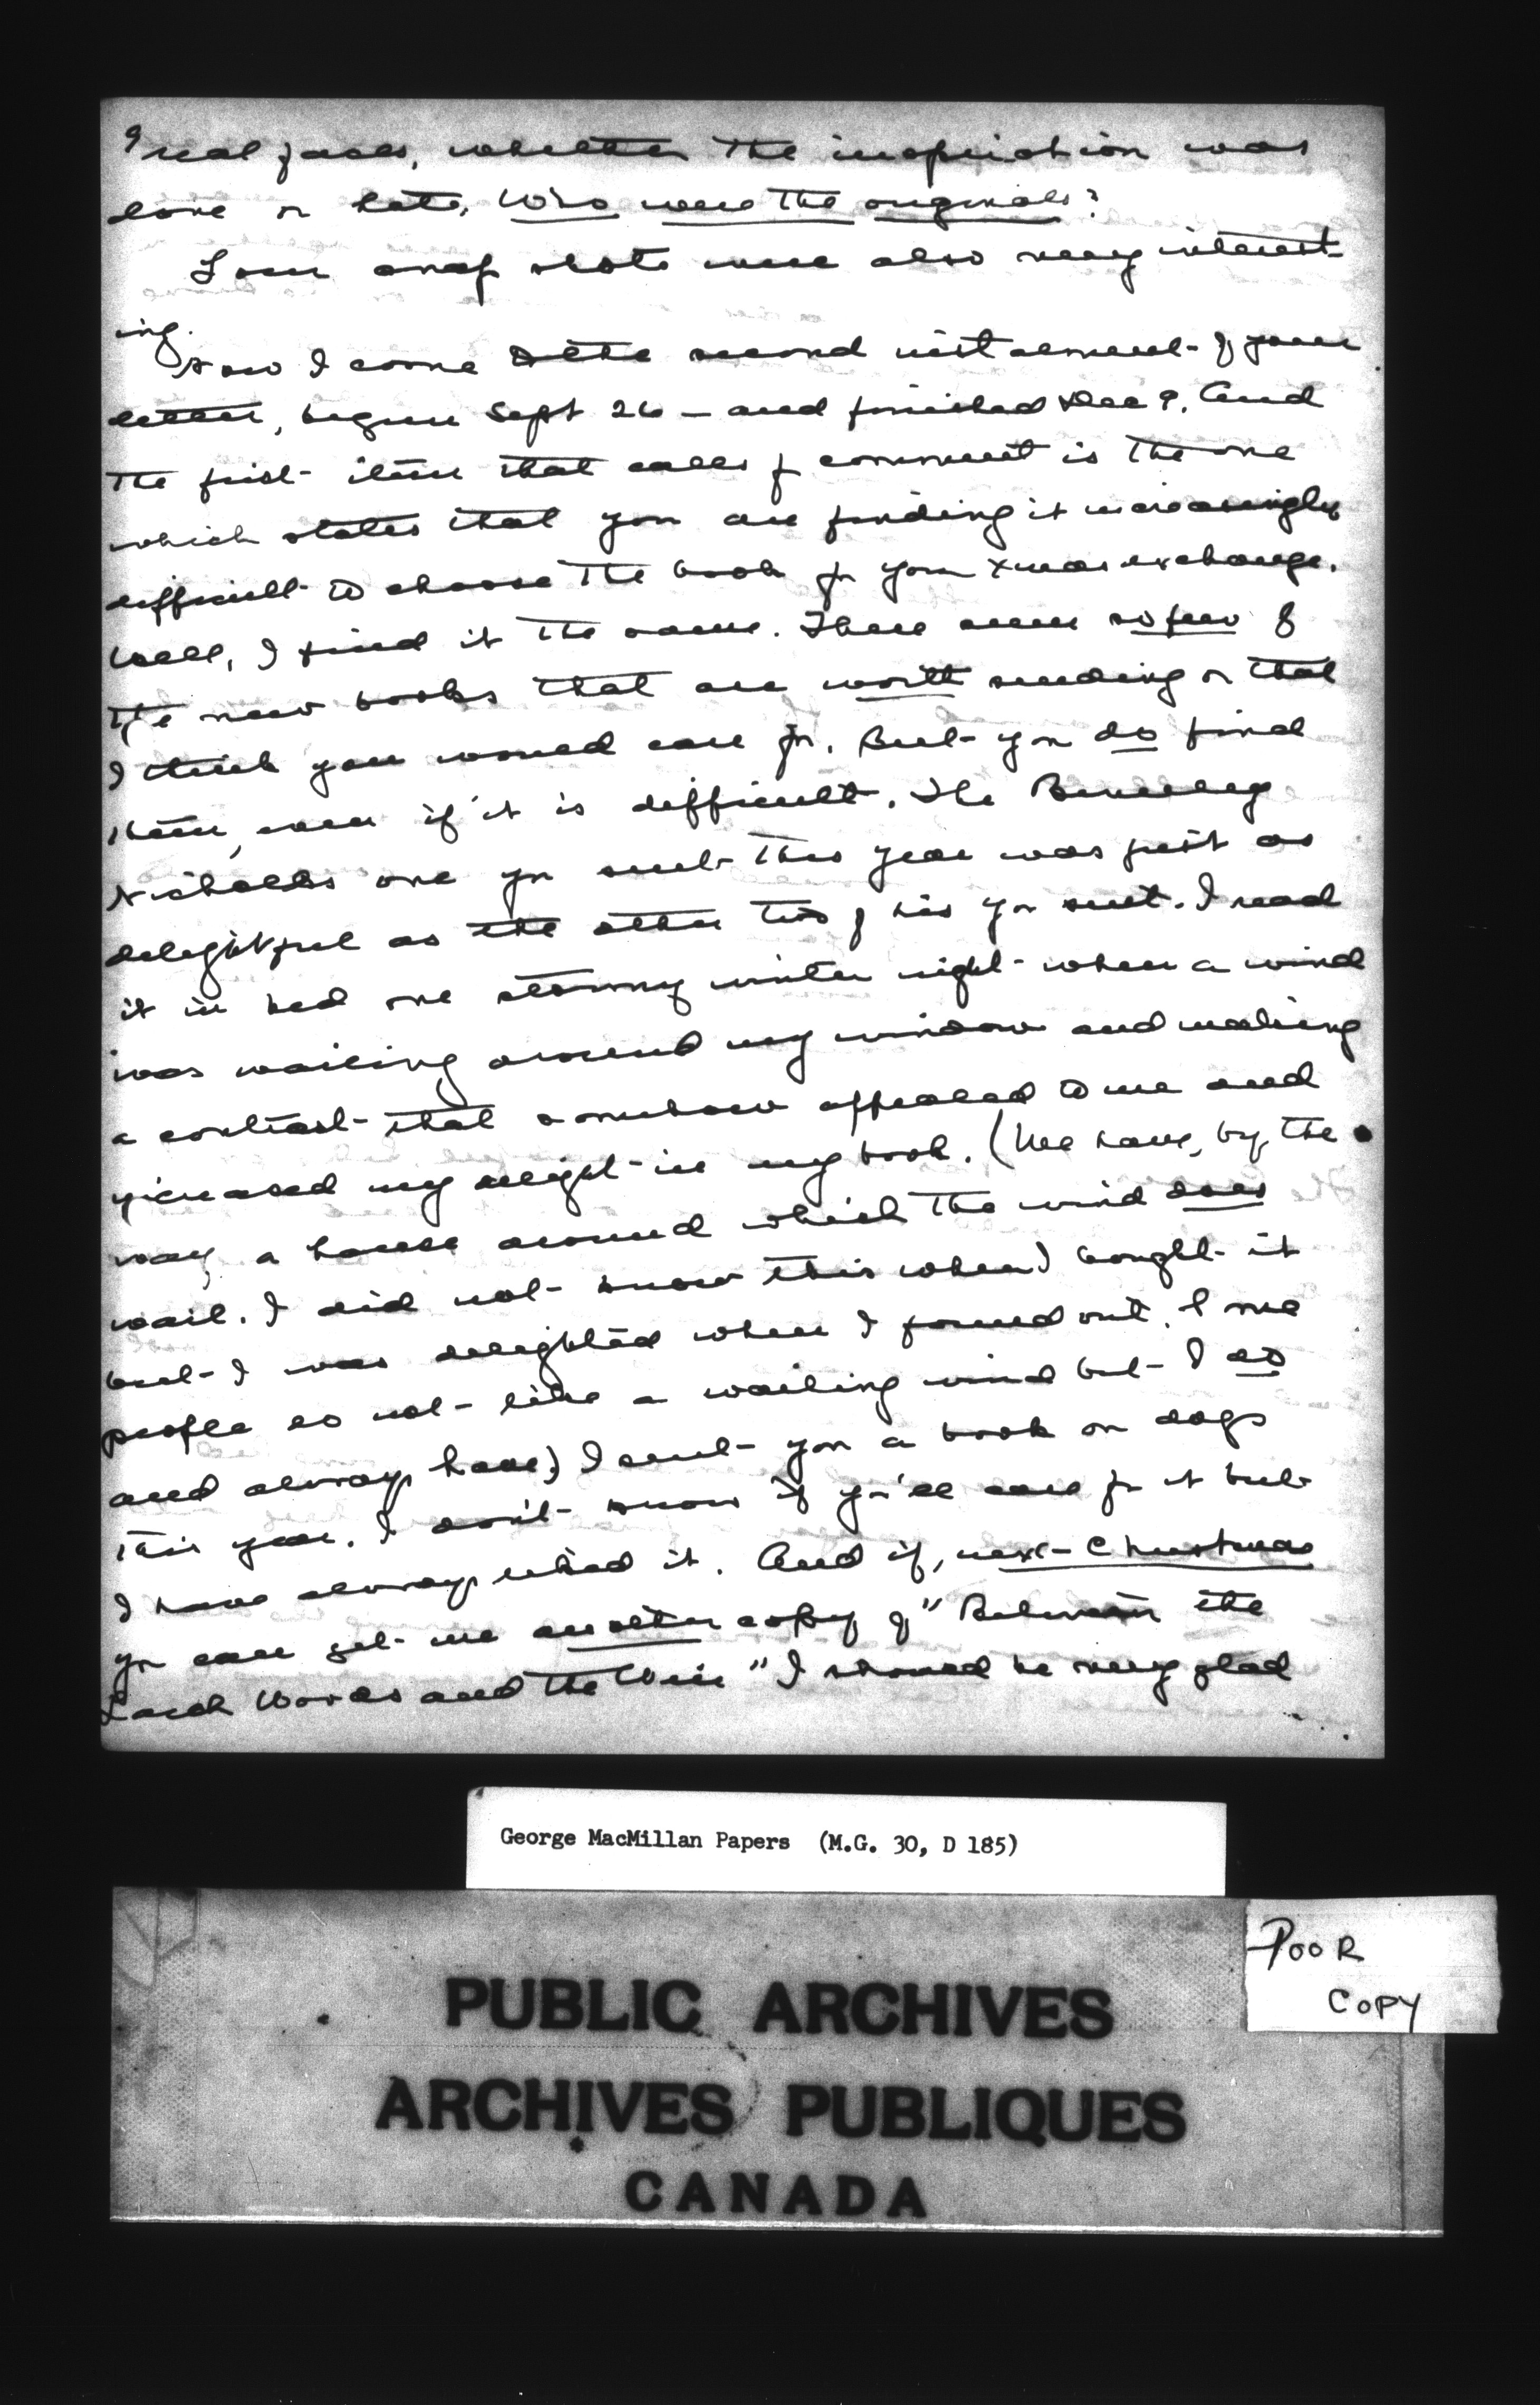 of real faces, whether the inspiration was
love or hate. Who were the originals?
Your snap shots were also very interest-
ing.
Now I come to the second instalment of your
letter, begun Sept 26 – and finished Dec 9. And
the first item that calls for comment is the one
which states that you are finding it increasingly
difficult to choose the book for your Xmas exchange.
Well, I find it the same. There seem so few of
the new books that are worth sending or that
I think you would care for. But you do find
them, even if it is difficult. The Beverley
Nicholls one you sent this year was just as
delightful as the other two of his you sent. I read
it in bed one stormy winter night when a wind
was wailing around my window and making
a contrast that somehow appealed to me and
increased my delight in my book. (We have, by the
way, a house around which the wind does
wail. I did not know this when I bought it
but I was delighted when I found out. Some
people do not like a wailing wind but I do
and always have.) I sent you a book on dogs
this year. I don't know if you'll care for it but
I have always liked it. And if, next Christmas
you can get me another copy of "Between the
Larch Woods and the Weir" I should be very glad
George MacMillan Papers (M.G. 30, D 185)
POOR
COPY
PUBLIC ARCHIVES
ARCHIVES PUBLIQUES
CANADA